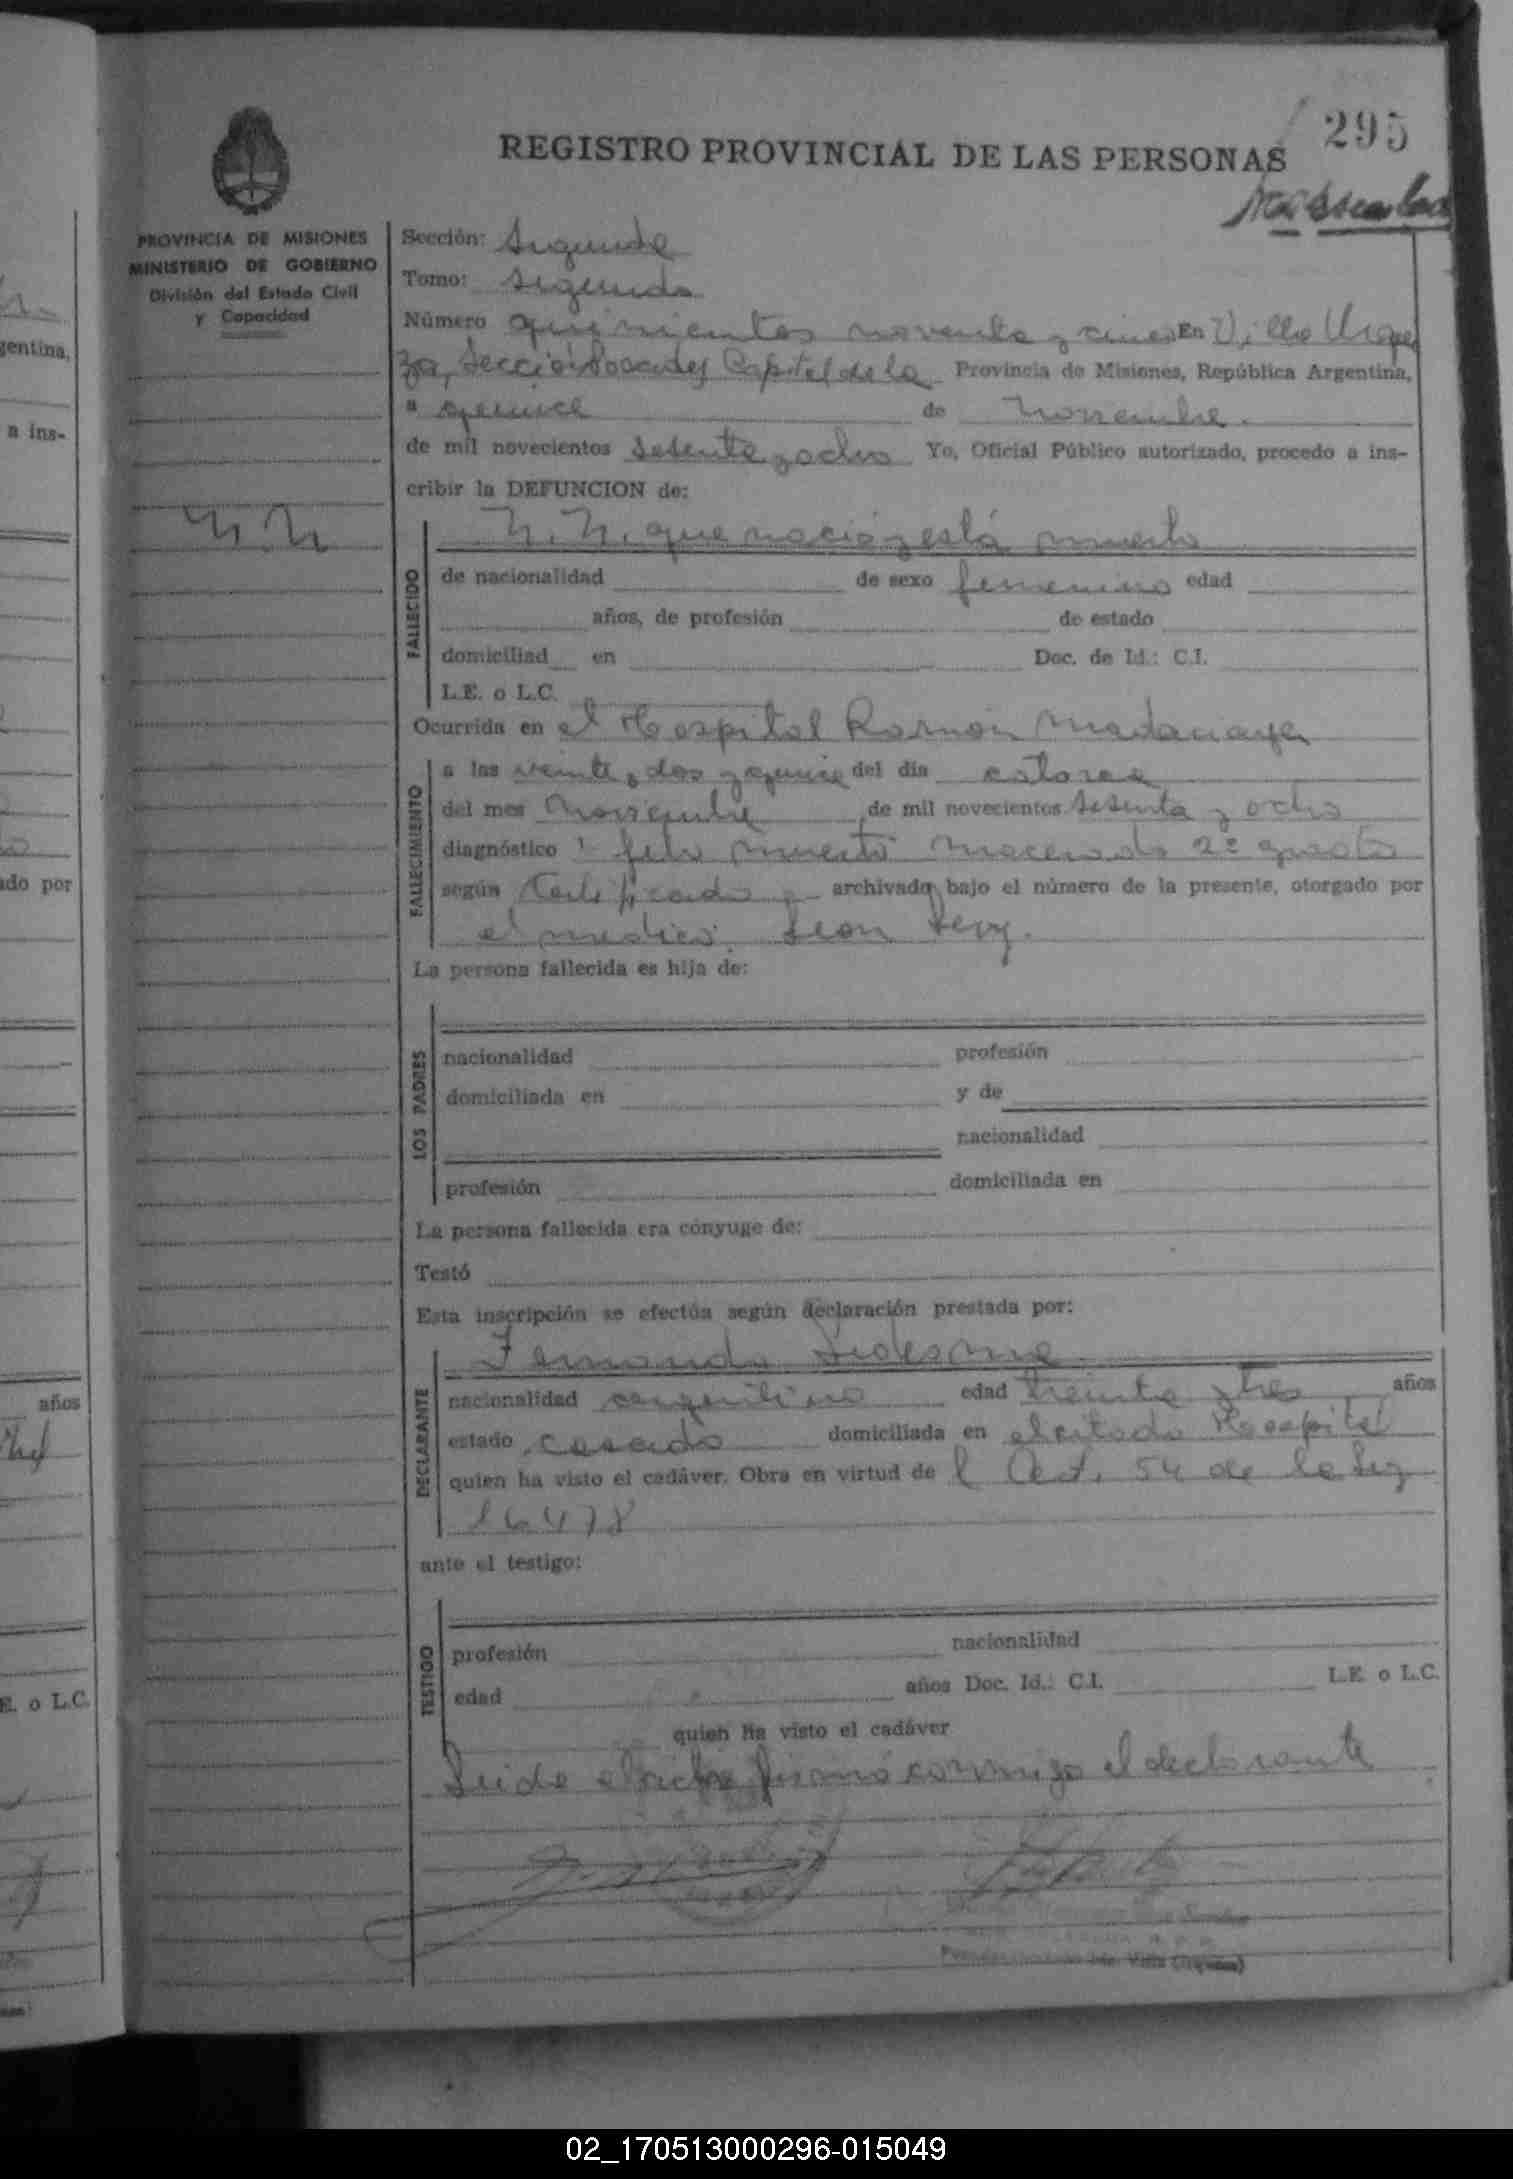 295
REGISTRO PROVINCIAL DE LAS PERSONAS
PROVINCIA DE MISIONES
MINISTERIO DE GOBIERNO
División del Estado Civil
y Capacidad
N.N
Sección: Segunda
Tomo: segundo
Número quinientos noventa y cinco En Villa Urqui
za, Sección Posadas Capital de la Provincia de Misiones, República Argentina,
a quince de Noviembre
de mil novecientos sesenta y ocho Yo, Oficial Público autorizado, procedo a ins-
cribir la DEFUNCION de:
FALLECIDO
N. N. que nació y está muerto
de nacionalidad de sexo femenino edad
años, de profesión de estado
domiciliad en Doc. de Id.: C.I.
L.E. o L.C.
Ocurrida en el Hospital Ramón Madariaga
FALLECIMIENTO
a las veinte y dos y quince del día catorce
del mes Noviembre de mil novecientos sesenta y ocho
diagnóstico feto muerto macerado 2º grado
según Certificado archivado bajo el número de la presente, otorgado por
el medico. Leon Levy.
La persona fallecida es hija de:
LOS PADRES
nacionalidad profesión
domiciliada en y de
nacionalidad
profesión domiciliada en
La persona fallecida era cónyuge de:
Testó
Esta inscripción se efectúa según declaración prestada por:
DECLARANTE
Fernando Ledesma
nacionalidad argentino edad treinta y tres años
estado casado domiciliada en el citado Hospital
quien ha visto el cadáver. Obra en virtud de l Art. 54 de la Ley
16478
ante el testigo:
TESTIGO
profesión nacionalidad
edad años Doc. Id.: C.I. L.E. o L.C.
quien ha visto el cadáver
Leida el acta firmó conmigo el declarante
gentina,
a ins-
ado por
años
E. o L.C.
02_170513000296-015049